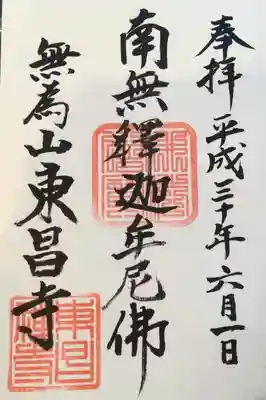 奉拝 平成三十年六月一日
南無釋迦牟尼佛
無為山東昌寺
東昌